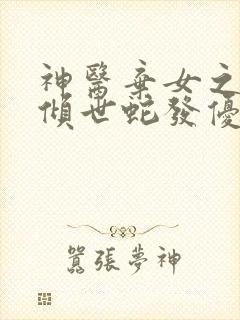 神醫棄女之
傾世蛇發優
囂張夢神